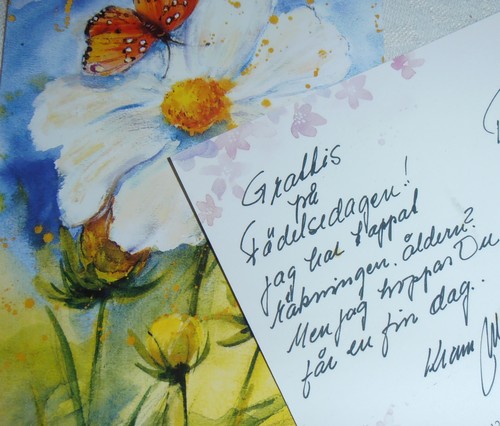 Grattis
på
Födelsedagen!
jag har tappat
räkningen. åldern?
Men jag hoppas Du
får en fin dag..
Kram